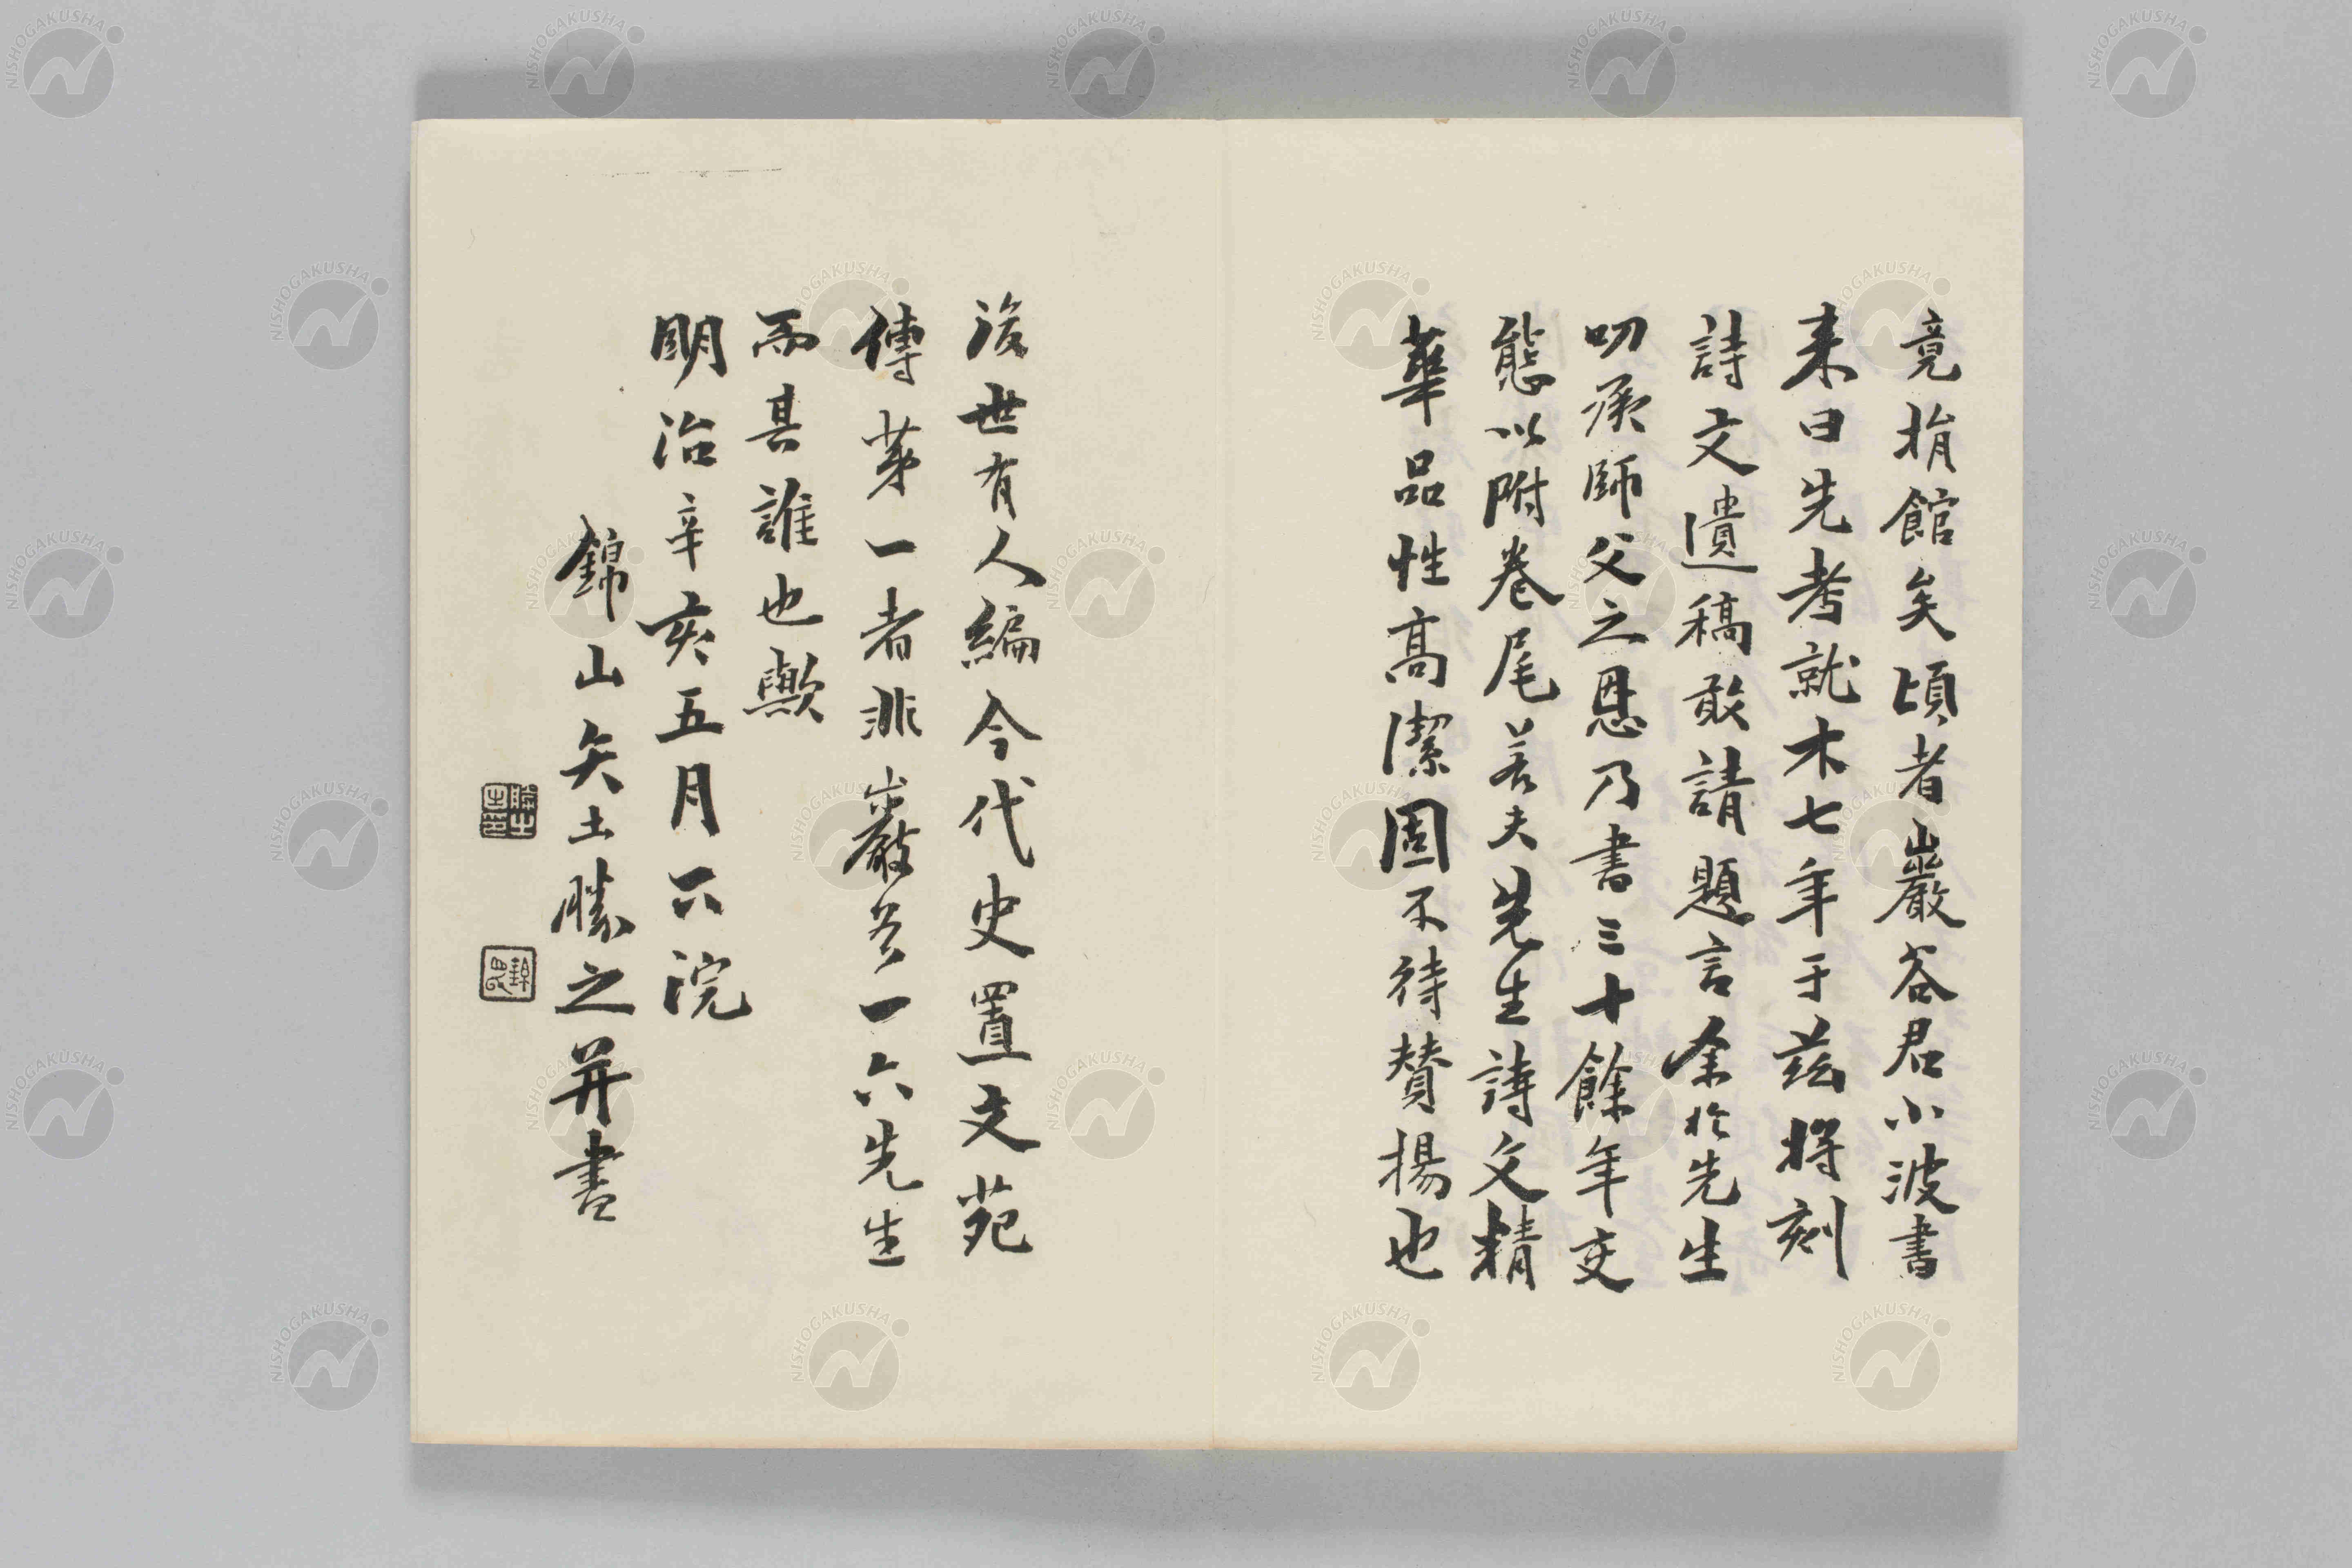 竟捐館矣頃者巖谷君小波書
来曰先考就木七年于茲將刻
詩文遺稿敢請題言余於先生
叨張師父之恩乃書三十餘年交
態以附卷尾若夫先生詩文精
華品性高潔固不待贊揚也
後世有人編今代史置文苑
傳苐一者非巖谷一六先生
而其誰也歟
明治辛亥五月下浣
錦山矢土勝之并書
NISHOGAKUSHA